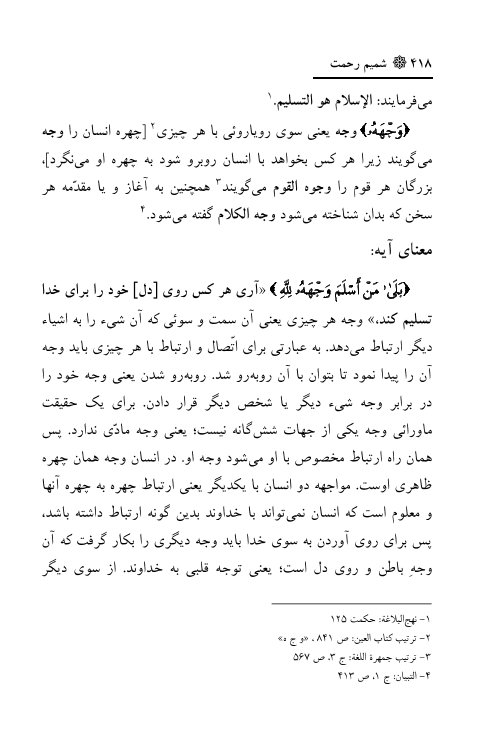 ۴۱۸ ❁ شمیم رحمت
می‌فرمایند: الإسلام هو التسلیم.۱
﴿وَجْهَهُۥ﴾ وجه یعنی سوی رویاروئی با هر چیزی۲ [چهره انسان را وجه
می‌گویند زیرا هر کس بخواهد با انسان روبرو شود به چهره او می‌نگرد]،
بزرگان هر قوم را وجوه القوم می‌گویند۳ همچنین به آغاز و یا مقدّمه هر
سخن که بدان شناخته می‌شود وجه الکلام گفته می‌شود.۴
معنای آیه:
﴿بَلَىٰ مَنْ أَسْلَمَ وَجْهَهُۥ لِلَّهِ﴾ «آری هر کس روی [دل] خود را برای خدا
تسلیم کند،» وجه هر چیزی یعنی آن سمت و سوئی که آن شیء را به اشیاء
دیگر ارتباط می‌دهد. به عبارتی برای اتّصال و ارتباط با هر چیزی باید وجه
آن را پیدا نمود تا بتوان با آن روبه‌رو شد. روبه‌رو شدن یعنی وجه خود را
در برابر وجه شیء دیگر یا شخص دیگر قرار دادن. برای یک حقیقت
ماورائی وجه یکی از جهات شش‌گانه نیست؛ یعنی وجه مادّی ندارد. پس
همان راه ارتباط مخصوص با او می‌شود وجه او. در انسان وجه همان چهره
ظاهری اوست. مواجهه دو انسان با یکدیگر یعنی ارتباط چهره به چهره آنها
و معلوم است که انسان نمی‌تواند با خداوند بدین گونه ارتباط داشته باشد،
پس برای روی آوردن به سوی خدا باید وجه دیگری را بکار گرفت که آن
وجهِ باطن و روی دل است؛ یعنی توجه قلبی به خداوند. از سوی دیگر
۱- نهج‌البلاغة: حکمت ۱۲۵
۲- ترتیب کتاب العین: ص ۸۴۱ ، «و ج ه»
۳- ترتیب جمهرة اللغة: ج ۳، ص ۵۶۷
۴- التبیان: ج ۱، ص ۴۱۳